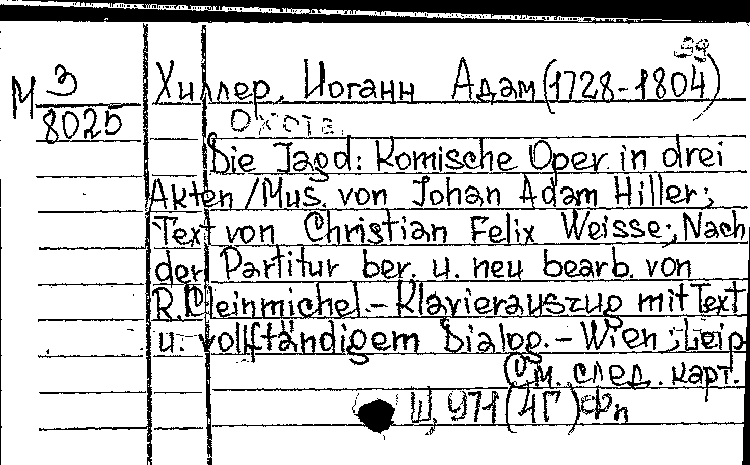 99
Хиллер, Иоганн Адам (1728-1804)
М З
8025
Охота.
Die Jagd: Komische Oper in drei
Akten / Mus. von Johan Adam Hiller;
Text von Christian Felix Weisse; Nach
der Partitur ber. u. neu bearb. von
R. Kleinmichel. - Klavierauszug mit Text
u. vollftändigem Dialog. - Wien; Leip
См. след. карт.
Ш 971 (4Г) Фп